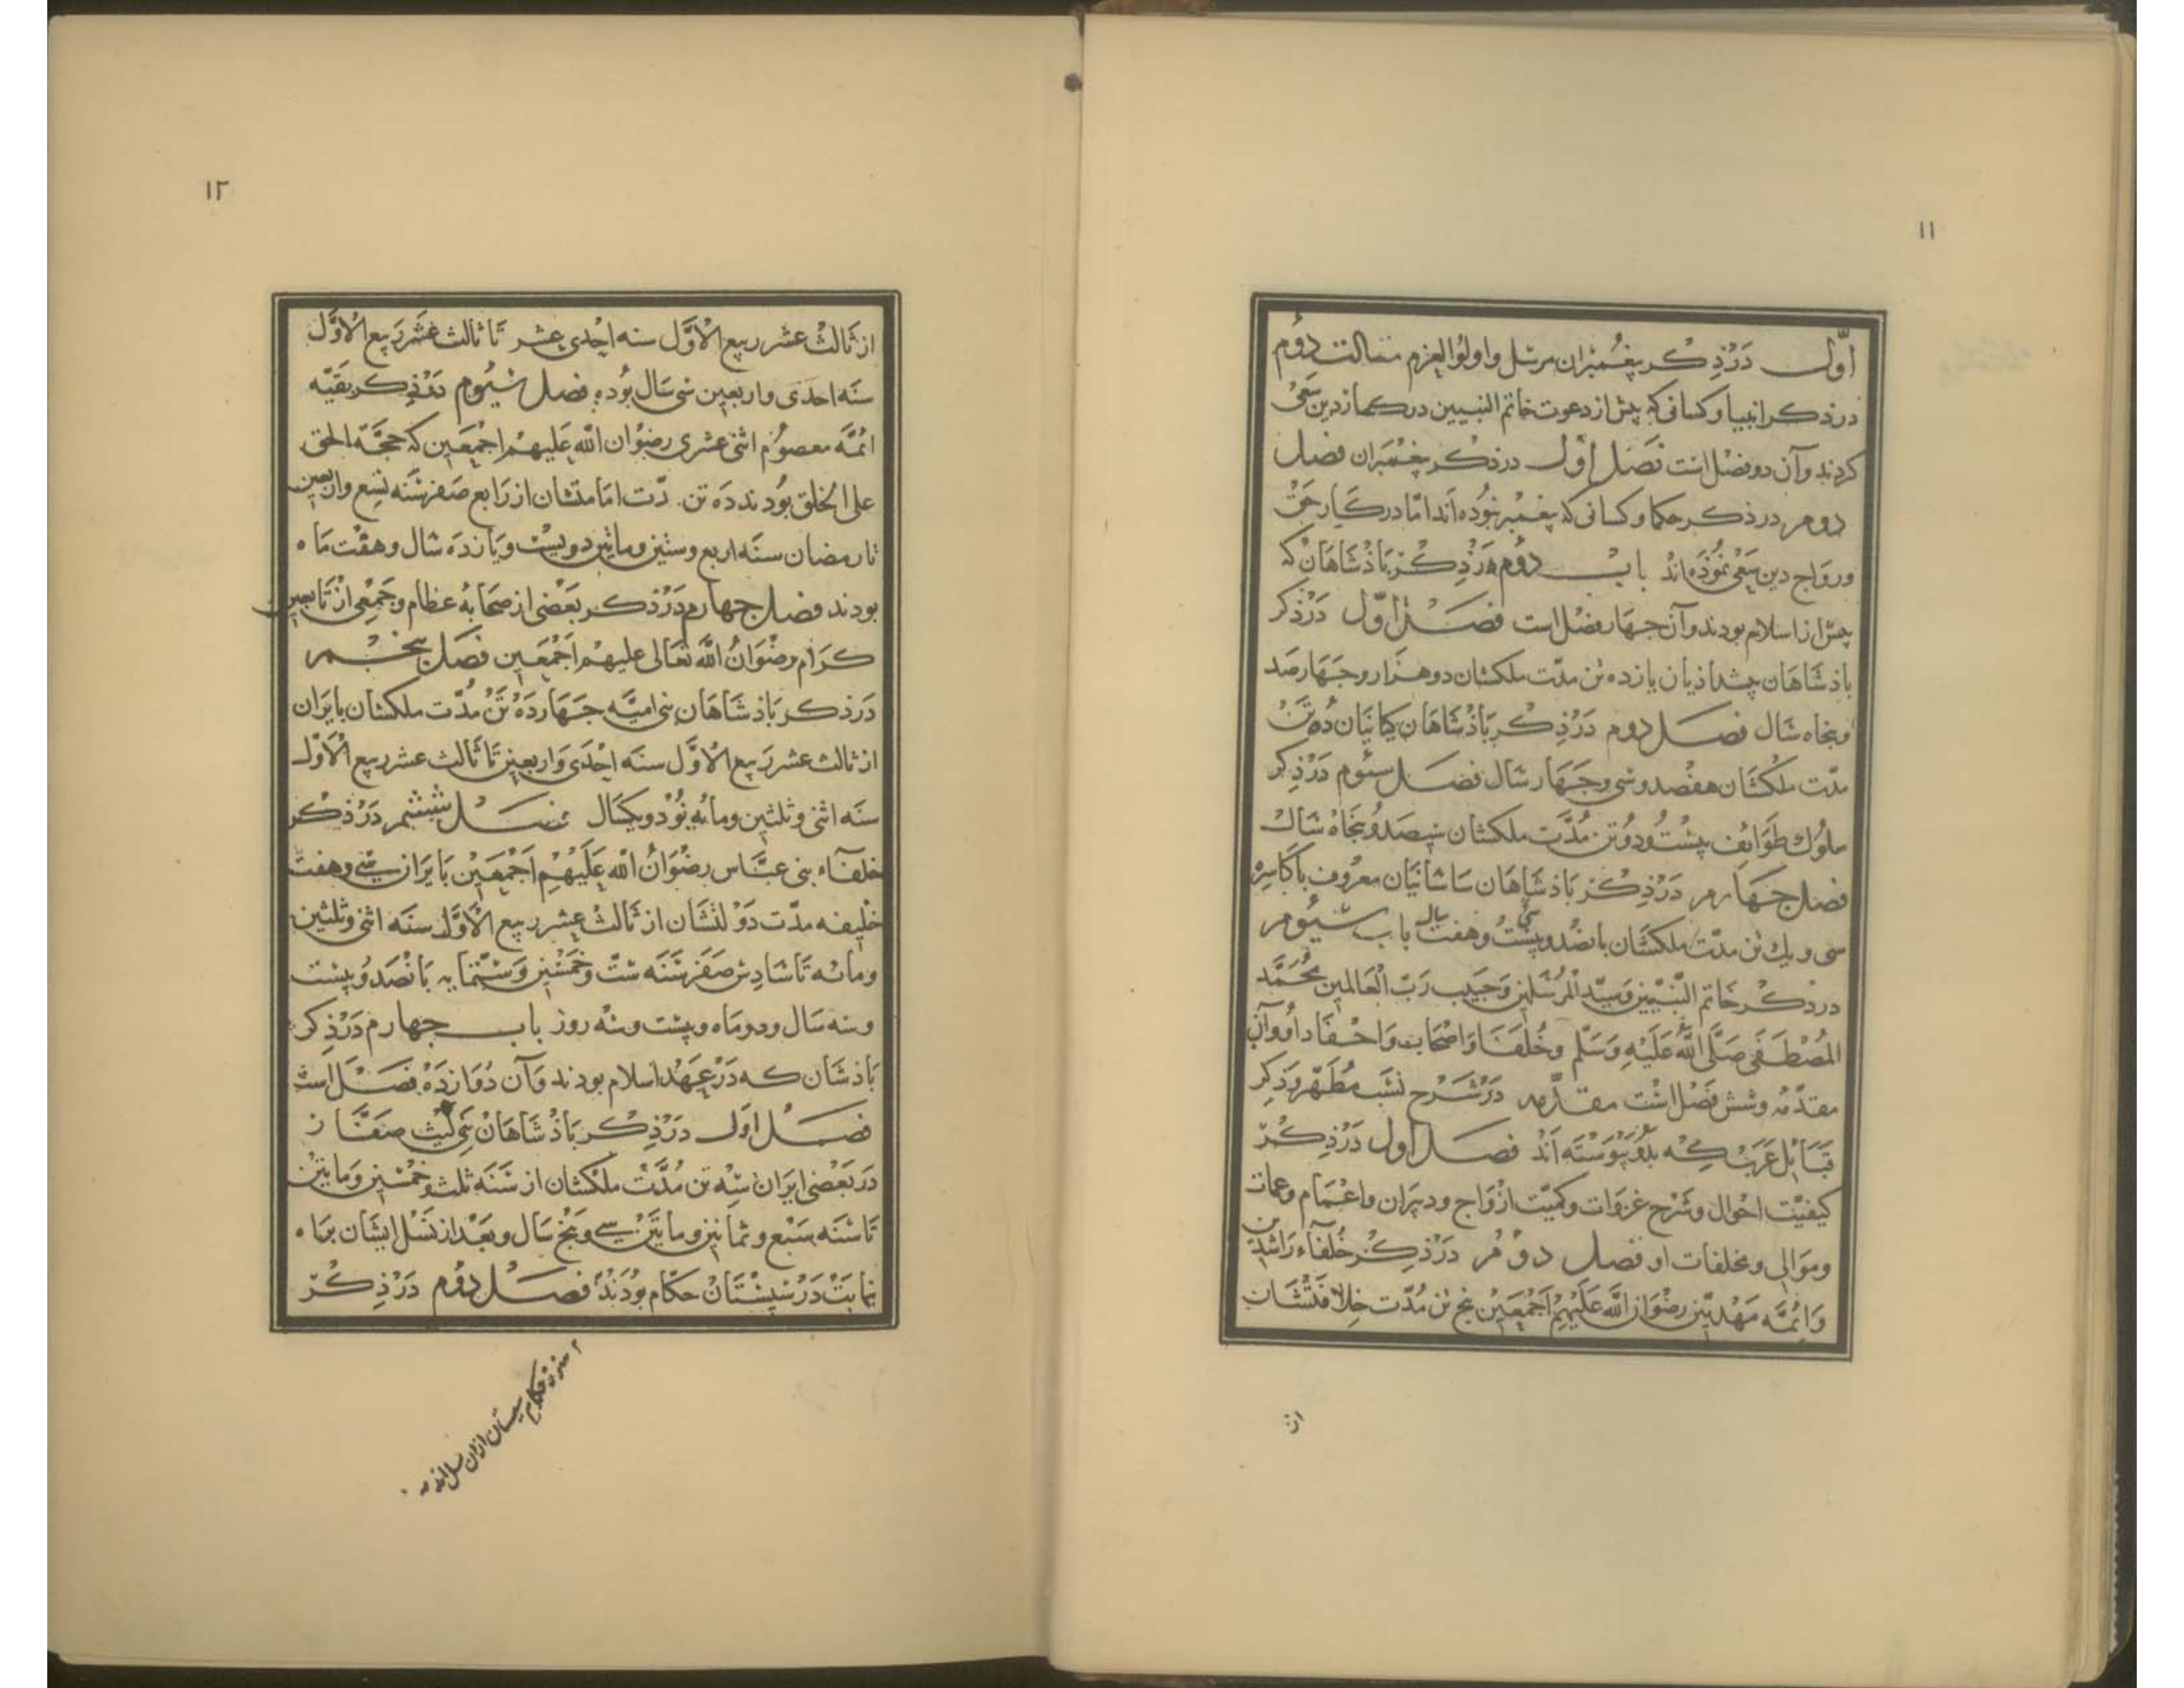 ۱۱
اوّل در ذکر پیغمبران مرسل و اولوالعزم مقالت دوم
در ذکر انبیا و کسانی که پیش از دعوت خاتم النبیین در کار دین سعی
کردند و آن دو فصل است فصل اول در ذکر پیغمبران فصل
دوم در ذکر حکما و کسانی که پیغمبر نبوده‌اند امّا در کار حق
و رواج دین سعی نموذه‌اند باب دوم در ذکر پاذشاهان که
پیش از اسلام بودند و آن چهار فصل است فصل اوّل در ذکر
پاذشاهان پیشداذیان یازده تن مدّت ملکشان دو هزار و چهار صد
و پنجاه سال فصل دوم در ذکر پاذشاهان کیانیان ده تن
مدّت ملکشان هفصد و سی و چهار سال فصل سئوم در ذکر
ملوک طوائف بیست و دو تن مدّت ملکشان سیصد و پنجاه سال
فصل چهارم در ذکر پاذشاهان ساسانیان معروف باکاسره
سی و یک تن مدّت ملکشان پانصد و بیست و هفت سال باب سیوم
در ذکر خاتم النّبیین و سیّد المرسلین و حبیب ربّ العالمین محمّد
المصطفی صلّی اللّه علیه و سلّم و خلفا و اصحاب و احفاد او و آن
مقدّمه و شش فصل است مقدّمه در شرح نسب مطهّر و ذکر
قبایل عرب که بدو پیوسته‌اند فصل اول در ذکر
کیفیّت احوال و شرح غزوات و کمیّت ازواج و دبیران و اعمام و عمات
و موالی و مخلفات او فصل دوم در ذکر خلفاء راشدین
و ائمّه مهدیّین رضوان اللّه علیهم اجمعین پنج تن مدّت خلافتشان
از
۱۲
از ثالث عشر ربیع الاوّل سنه احدی عشر تا ثالث عشر ربیع الاوّل
سنه احدی و اربعین سی سال بوده فصل سیوم در ذکر بقیّه
ائمّه معصوم اثنی عشری رضوان اللّه علیهم اجمعین که حجّة الحق
علی الخلق بودند ده تن مدّت امامتشان از رابع صفر سنه تسع و اربعین
تا رمضان سنه اربع و ستین و ماتین دویست و یازده سال و هفت ماه
بودند فصل چهارم در ذکر بعضی از صحابهٔ عظام و جمعی از تابعین
کرام رضوان اللّه تعالی علیهم اجمعین فصل پنجم
در ذکر پاذشاهان بنی امیّه چهارده تن مدّت ملکشان بایران
از ثالث عشر ربیع الاوّل سنه احدی و اربعین تا ثالث عشر ربیع الاوّل
سنه اثنی و ثلثین و مائه نود و یکسال فصل ششم در ذکر
خلفاء بنی عبّاس رضوان اللّه علیهم اجمعین بایران سی و هفت
خلیفه مدّت دولتشان از ثالث عشر ربیع الاوّل سنه اثنی و ثلثین
و مائه تا سادس صفر سنه ستّ و خمسین و ستمایه پانصد و بیست
و سه سال و دو ماه و بیست و سه روز باب چهارم در ذکر
پاذشان که در عهد اسلام بودند و آن دوازده فصل است
فصل اول در ذکر پاذشاهان بنی لیث صفّار
در بعضی ایران سه تن مدّت ملکشان از سنه ثلث و خمسین و ماتین
تا سنه سبع و ثمانین و ماتین سی و پنج سال و بعد از نسل ایشان براه
نیابت در سیستان حکّام بودند فصل دوم در ذکر
هنوز حکام سیستان از آن نسل اند